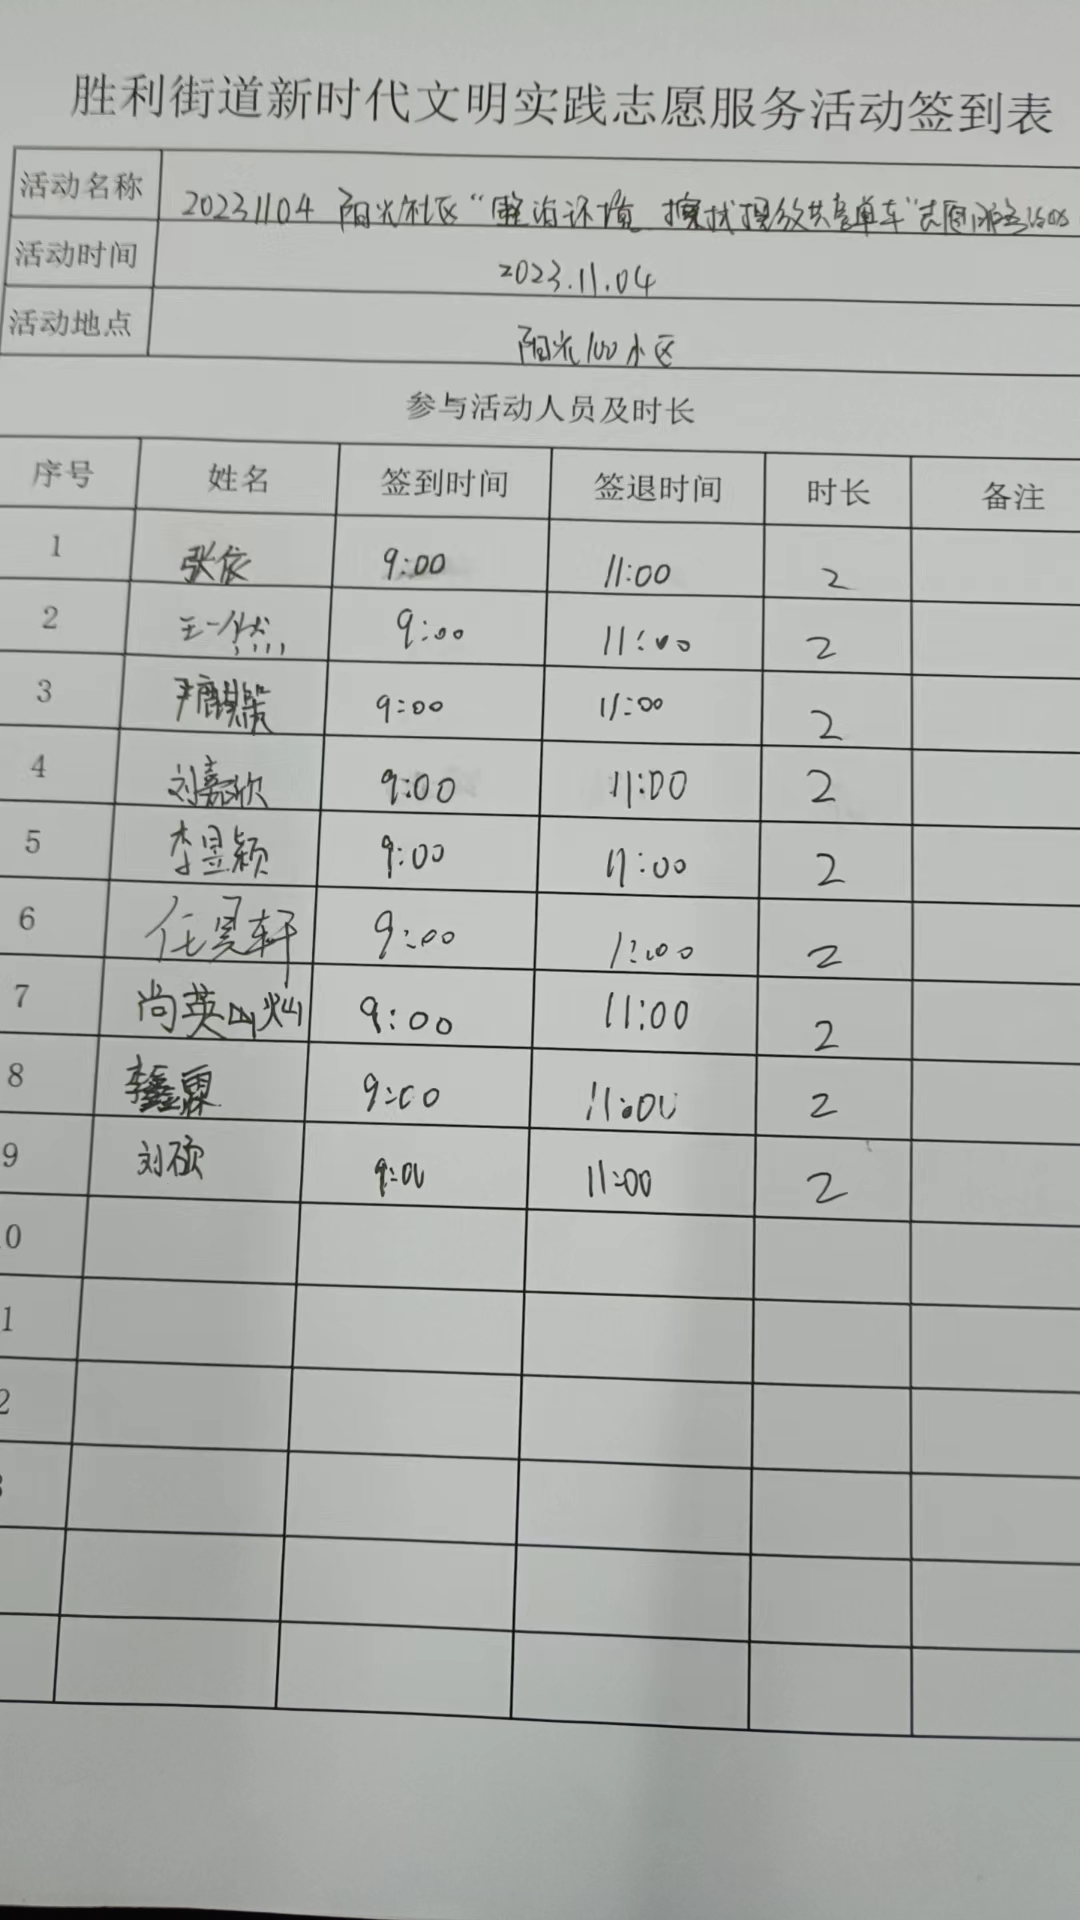 胜利街道新时代文明实践志愿服务活动签到表
活动名称 20231104 阳光社区“整治环境 摆放共享单车”志愿服务活动
活动时间 2023.11.04
活动地点 阳光100小区
参与活动人员及时长
序号 姓名 签到时间 签退时间 时长 备注
1 张依 9:00 11:00 2
2 王一然 9:00 11:00 2
3 9:00 11:00 2
4 刘嘉欣 9:00 11:00 2
5 李昱颖 9:00 11:00 2
6 任昊轩 9:00 11:00 2
7 尚英灿 9:00 11:00 2
8 李鑫霖 9:00 11:00 2
9 刘硕 9:00 11:00 2
0
1
2